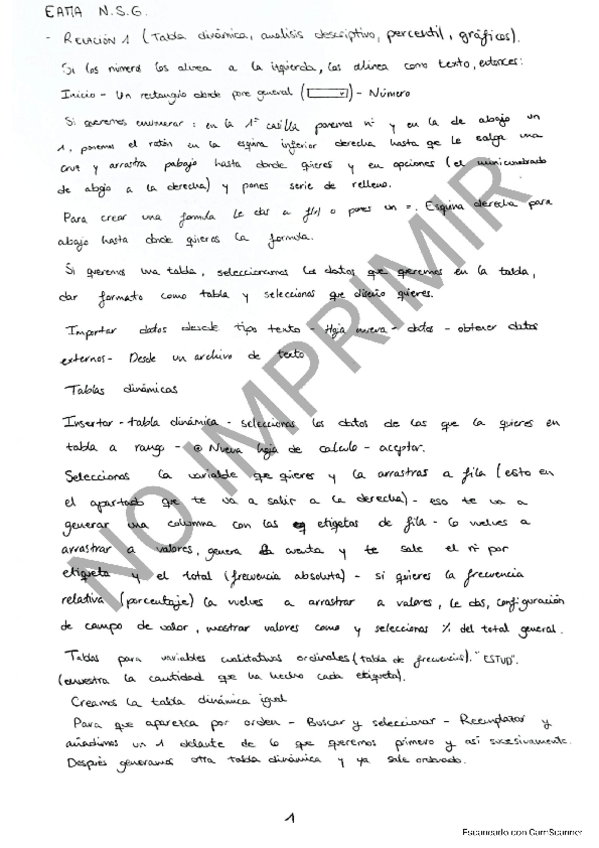 EATIA N.S.G.
- RELACIÓN 1 (Tabla dinámica, analisis descriptivo, percentil, gráficos).
Si los números los alinea a la izquierda, los alinea como texto, entonces:
Inicio - Un rectangulo donde pone general ( ) - Número
Si queremos enumerar: en la 1ª casilla ponemos nº y en la de abajo un
1, ponemos el ratón en la esquina inferior derecha hasta que le salga una
cruz y arrastra pabajo hasta donde quieres y en opciones (el minicuadrado
de abajo a la derecha) y pones serie de relleno.
Para crear una formula le das a f(x) o pones un =. Esquina derecha para
abajo hasta donde quieras la formula.
Si queremos una tabla, seleccionamos los datos que queremos en la tabla,
dar formato como tabla y seleccionas que diseño quieres.
Importar datos desde tipo texto - Hoja nueva - datos - obtener datos
externos - Desde un archivo de texto
Tablas dinámicas
Insertar - tabla dinámica - seleccionas los datos de los que la quieres en
tabla a rango - Nueva hoja de calculo - aceptar.
Seleccionas la variable que quieres y la arrastras a fila (esto en
el apartado que te va a salir a la derecha) - eso te va a
generar una columna con las etiqetas de fila - lo vuelves a
arrastrar a valores, genera la cuenta y te sale el nº por
etiqueta y el total (frecuencia absoluta) - si quieres la frecuencia
relativa (porcentaje) la vuelves a arrastrar a valores, le das, configuración
de campo de valor, mostrar valores como y seleccionas % del total general.
Tablas para variables cualitativas ordinales (tabla de frecuencias). "ESTUD".
(muestra la cantidad que ha hecho cada etiqueta).
Creamos la tabla dinámica igual
Para que aparezca por orden - Buscar y seleccionar - Reemplazar y
añadimos un 1 delante de lo que queremos primero y así sucesivamente.
Después generamos otra tabla dinámica y ya sale ordenado.
NO IMPRIMIR
1
Escaneado con CamScanner